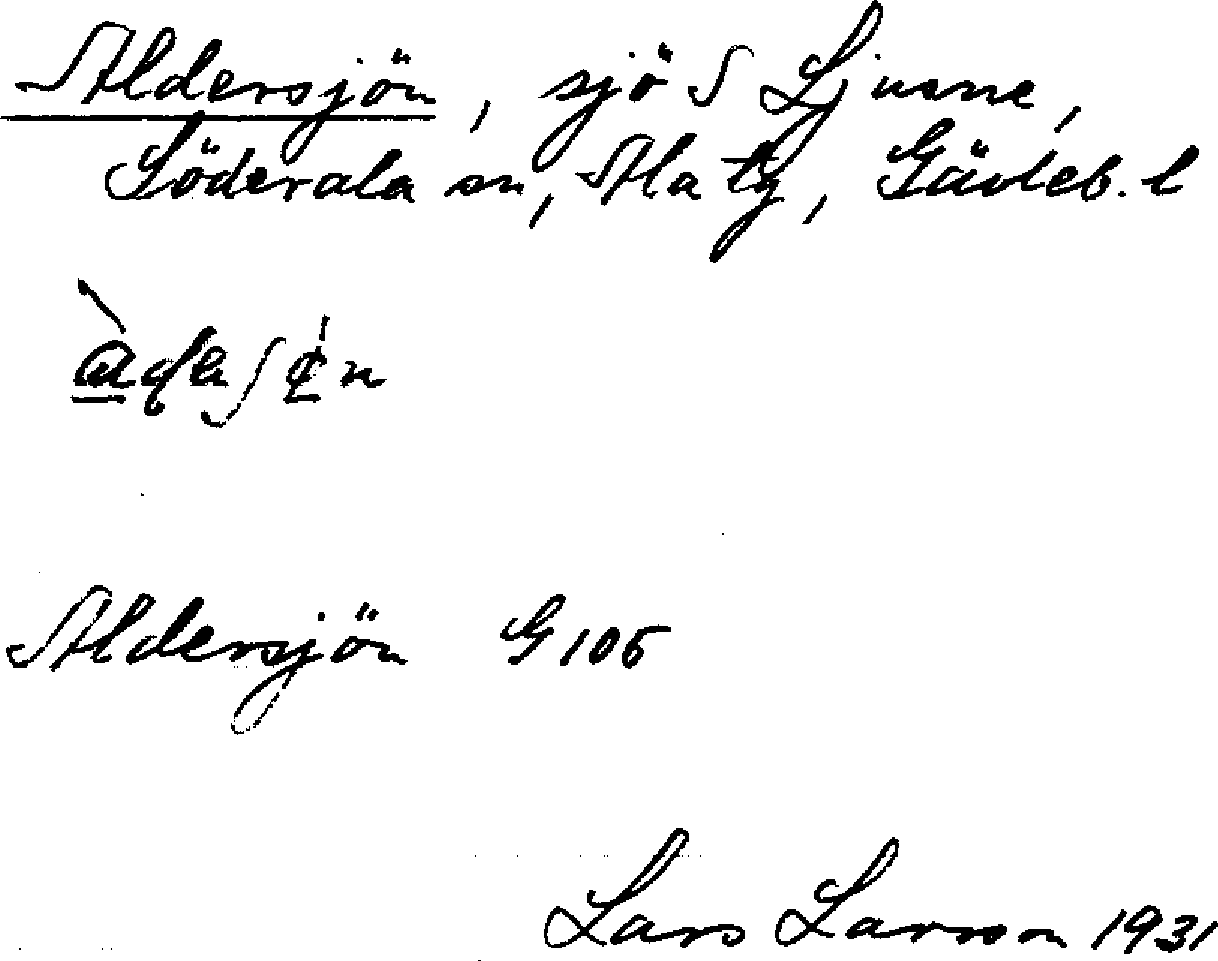 Aldersjön, sjö S Ljusne,
Söderala sn, Ala tg, Gävleb. l
Aldersjön G 105
Lars Larsson 1931